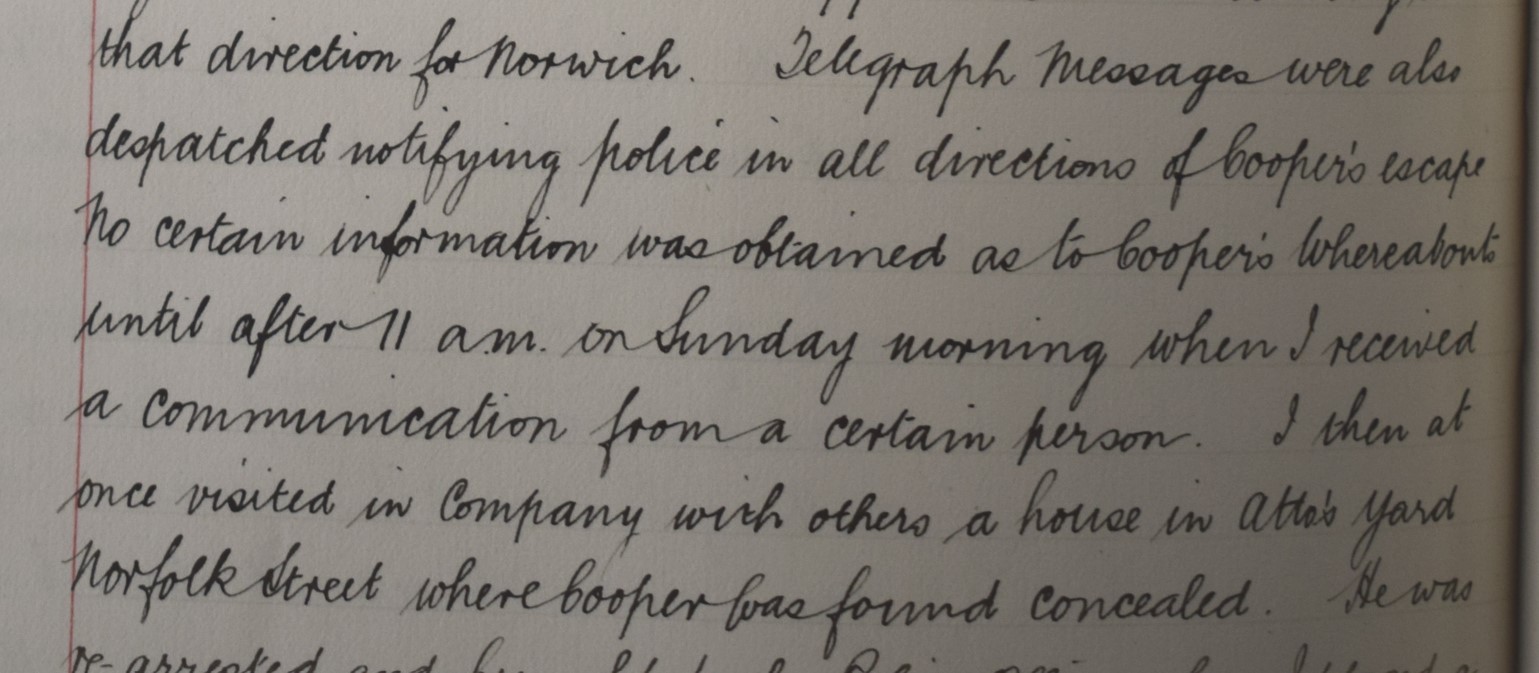 that direction for Norwich. Telegraph Messages were also
despatched notifying police in all directions of Cooper's escape
No certain information was obtained as to Cooper's Whereabouts
until after 11 a.m. on Sunday morning when I received
a communication from a certain person. I then at
once visited in Company with others a house in Atto's Yard
Norfolk Street where Cooper was found concealed. He was
re-arrested and